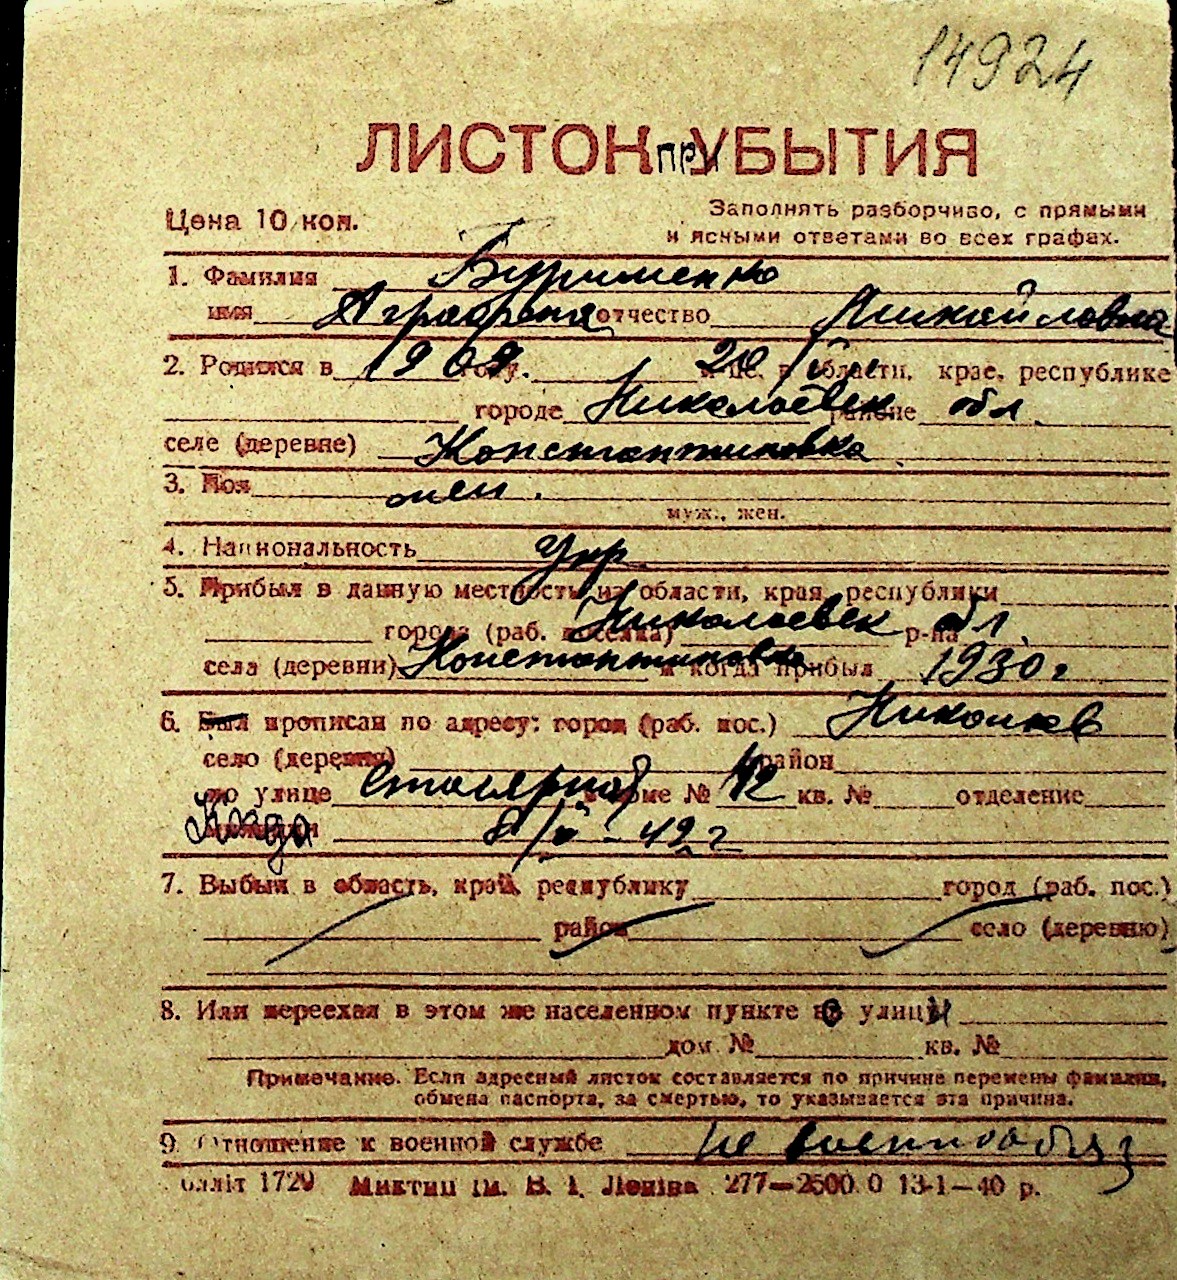 14924
ЛИСТОК при УБЫТИЯ
Цена 10 коп.
Заполнять разборчиво, с прямыми
и ясными ответами во всех графах.
1. Фамилия Бурименко
имя Аграфена отчество Михайловна
2. Родился в 1909 году. 20/VI в области, крае, республике
городе Николаевск районе обл
селе (деревне) Константиновка
3. Пол жен.
муж., жен.
4. Национальность Укр
5. Прибыл в данную местность из области, края, республики
города (раб. поселка) Николаевск р-на обл.
села (деревни) Константиновка и когда прибыл 1930 г
6. Был прописан по адресу: город (раб. пос.) Николаев
село (деревня) район
по улице Столярная в доме № 42 кв. № отделение
Когда милиции
7. Выбыл в область, край, республику город (раб. пос.)
район село (деревню)
8. Или переехал в этом же населенном пункте с улицы
дом № кв. №
Примечание. Если адресный листок составляется по причине перемены фамилии,
обмена паспорта, за смертью, то указывается эта причина.
9. Отношение к военной службе не военнообяз
облліт 1729 Миктип ім. В. І. Леніна 277—2500.0 13-1—40 р.